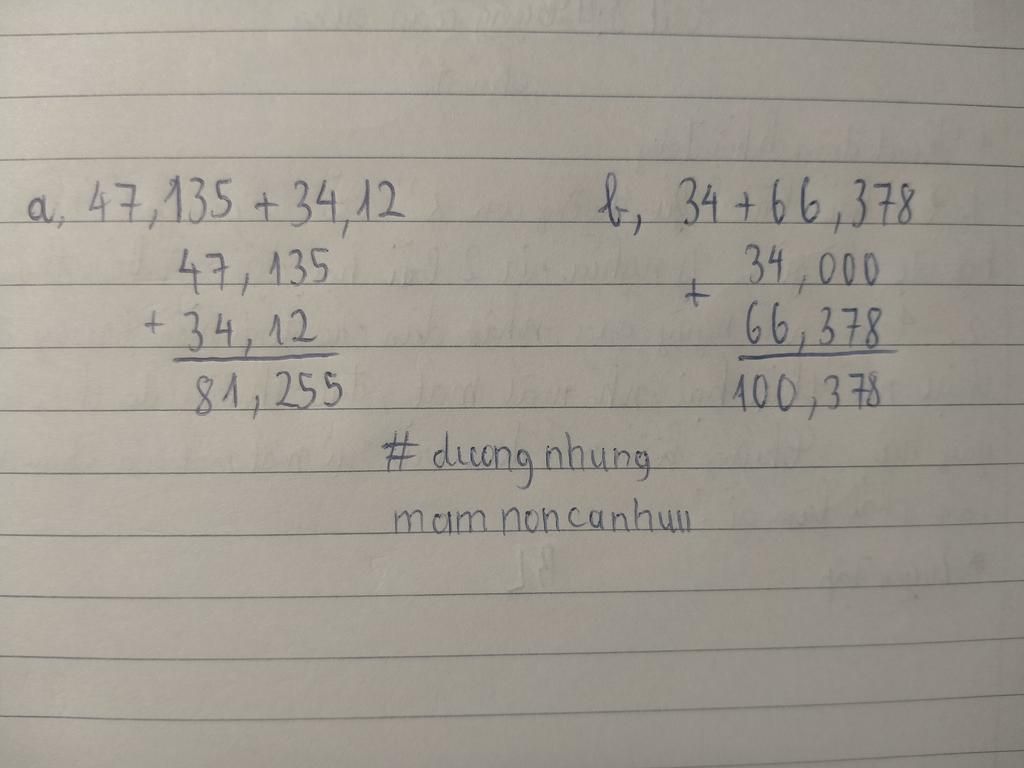 a, 47,135 + 34,12
47,135
+ 34,12
81,255
b, 34 + 66,378
34,000
+
66,378
100,378
# duongnhung
mamnoncanhuu